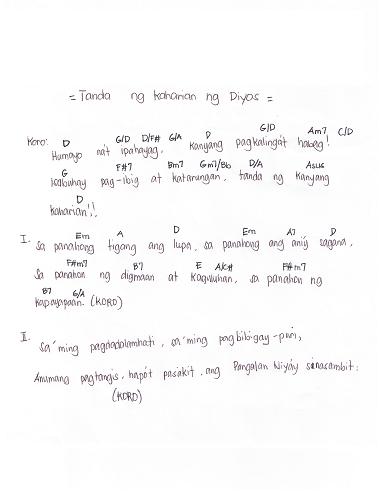 = Tanda ng kaharian ng Diyos =
Koro: D G/D D/F# G/A D G/D Am7 C/D
Humayo na't ipahayag, kanyang pagkalinga't habag!
G F#7 Bm7 Gm7/Bb D/A Asus
Isabuhay pag-ibig at katarungan, tanda ng kanyang
D
kaharian!!
I. Em A D Em A7 D
Sa panahong tigang ang lupa, sa panahong ang ani'y sagana,
F#m7 B7 E A/C# F#m7
Sa panahon ng digmaan at kaguluhan, sa panahon ng
B7 G/A
kapayapaan. (KORO)
II. Sa 'ming pagdadalamhati, sa 'ming pagbibigay-puri,
Anumang pagtangis, hapo't pasakit, ang Pangalan Niya'y sinasambit:
(KORO)